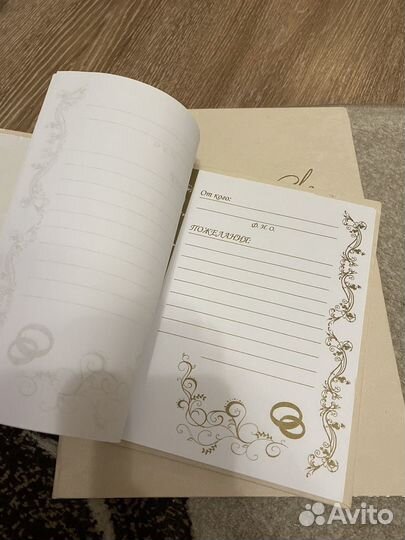 От кого:
Ф. И. О.
ПОЖЕЛАНИЕ:
Avito